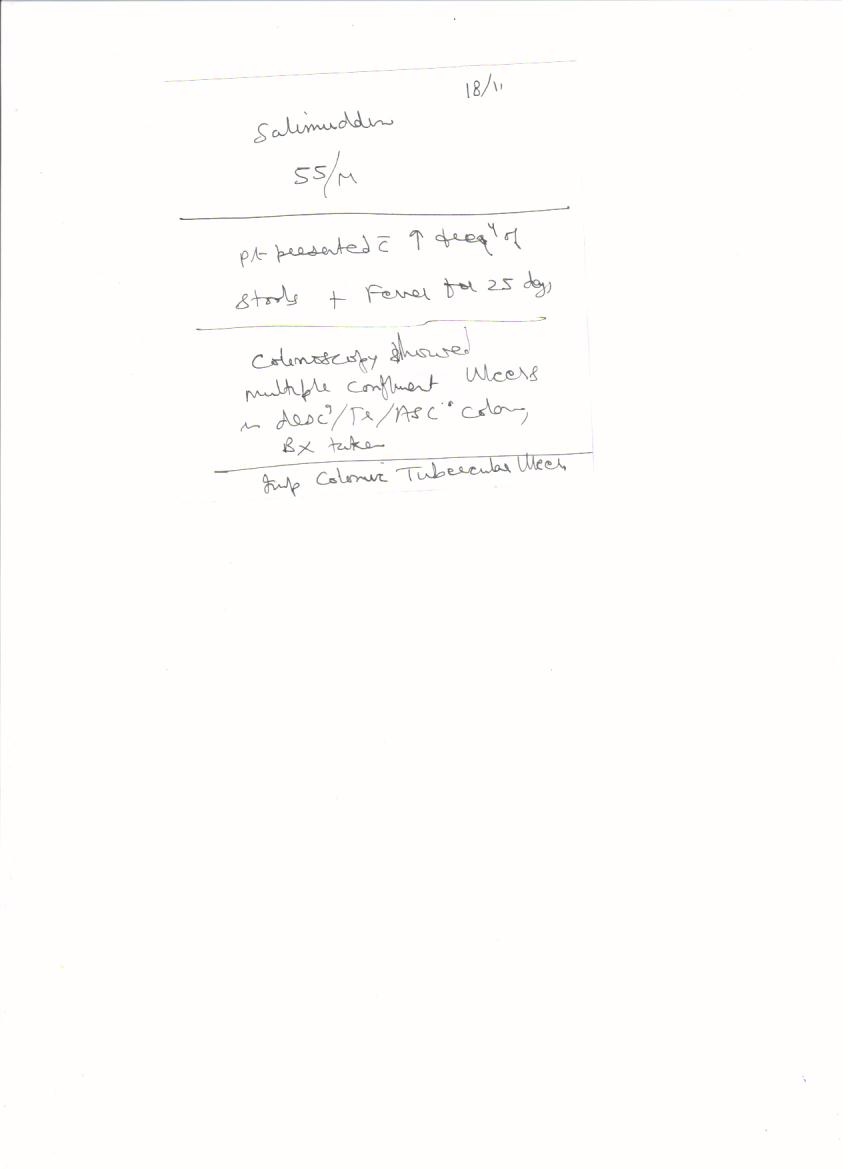 18/11
Salimuddin
55/M
pt presented c̄ ↑ freqy of
stools + Fever for 25 days
Colonoscopy showed
multiple confluent Ulcers
in descg/Tr/ASCg colon,
Bx taken
Imp Colonic Tubercular Ulcers